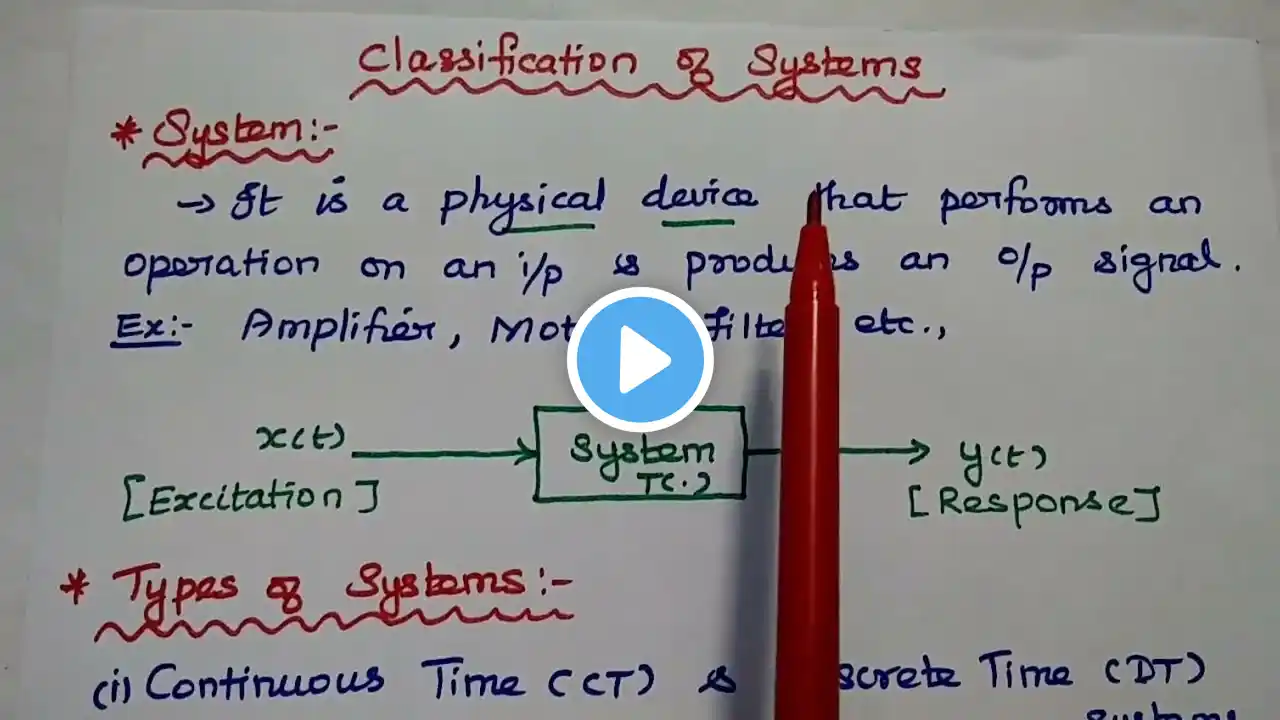 Classification of Systems
* System:-
→ It is a physical device that performs an
operation on an i/p & produces an o/p signal.
Ex:- Amplifier, Filter etc.,
x(t) System y(t)
T(.)
[Excitation] [Response]
* Types of Systems:-
(i) Continuous Time (CT) & Discrete Time (DT)
Systems